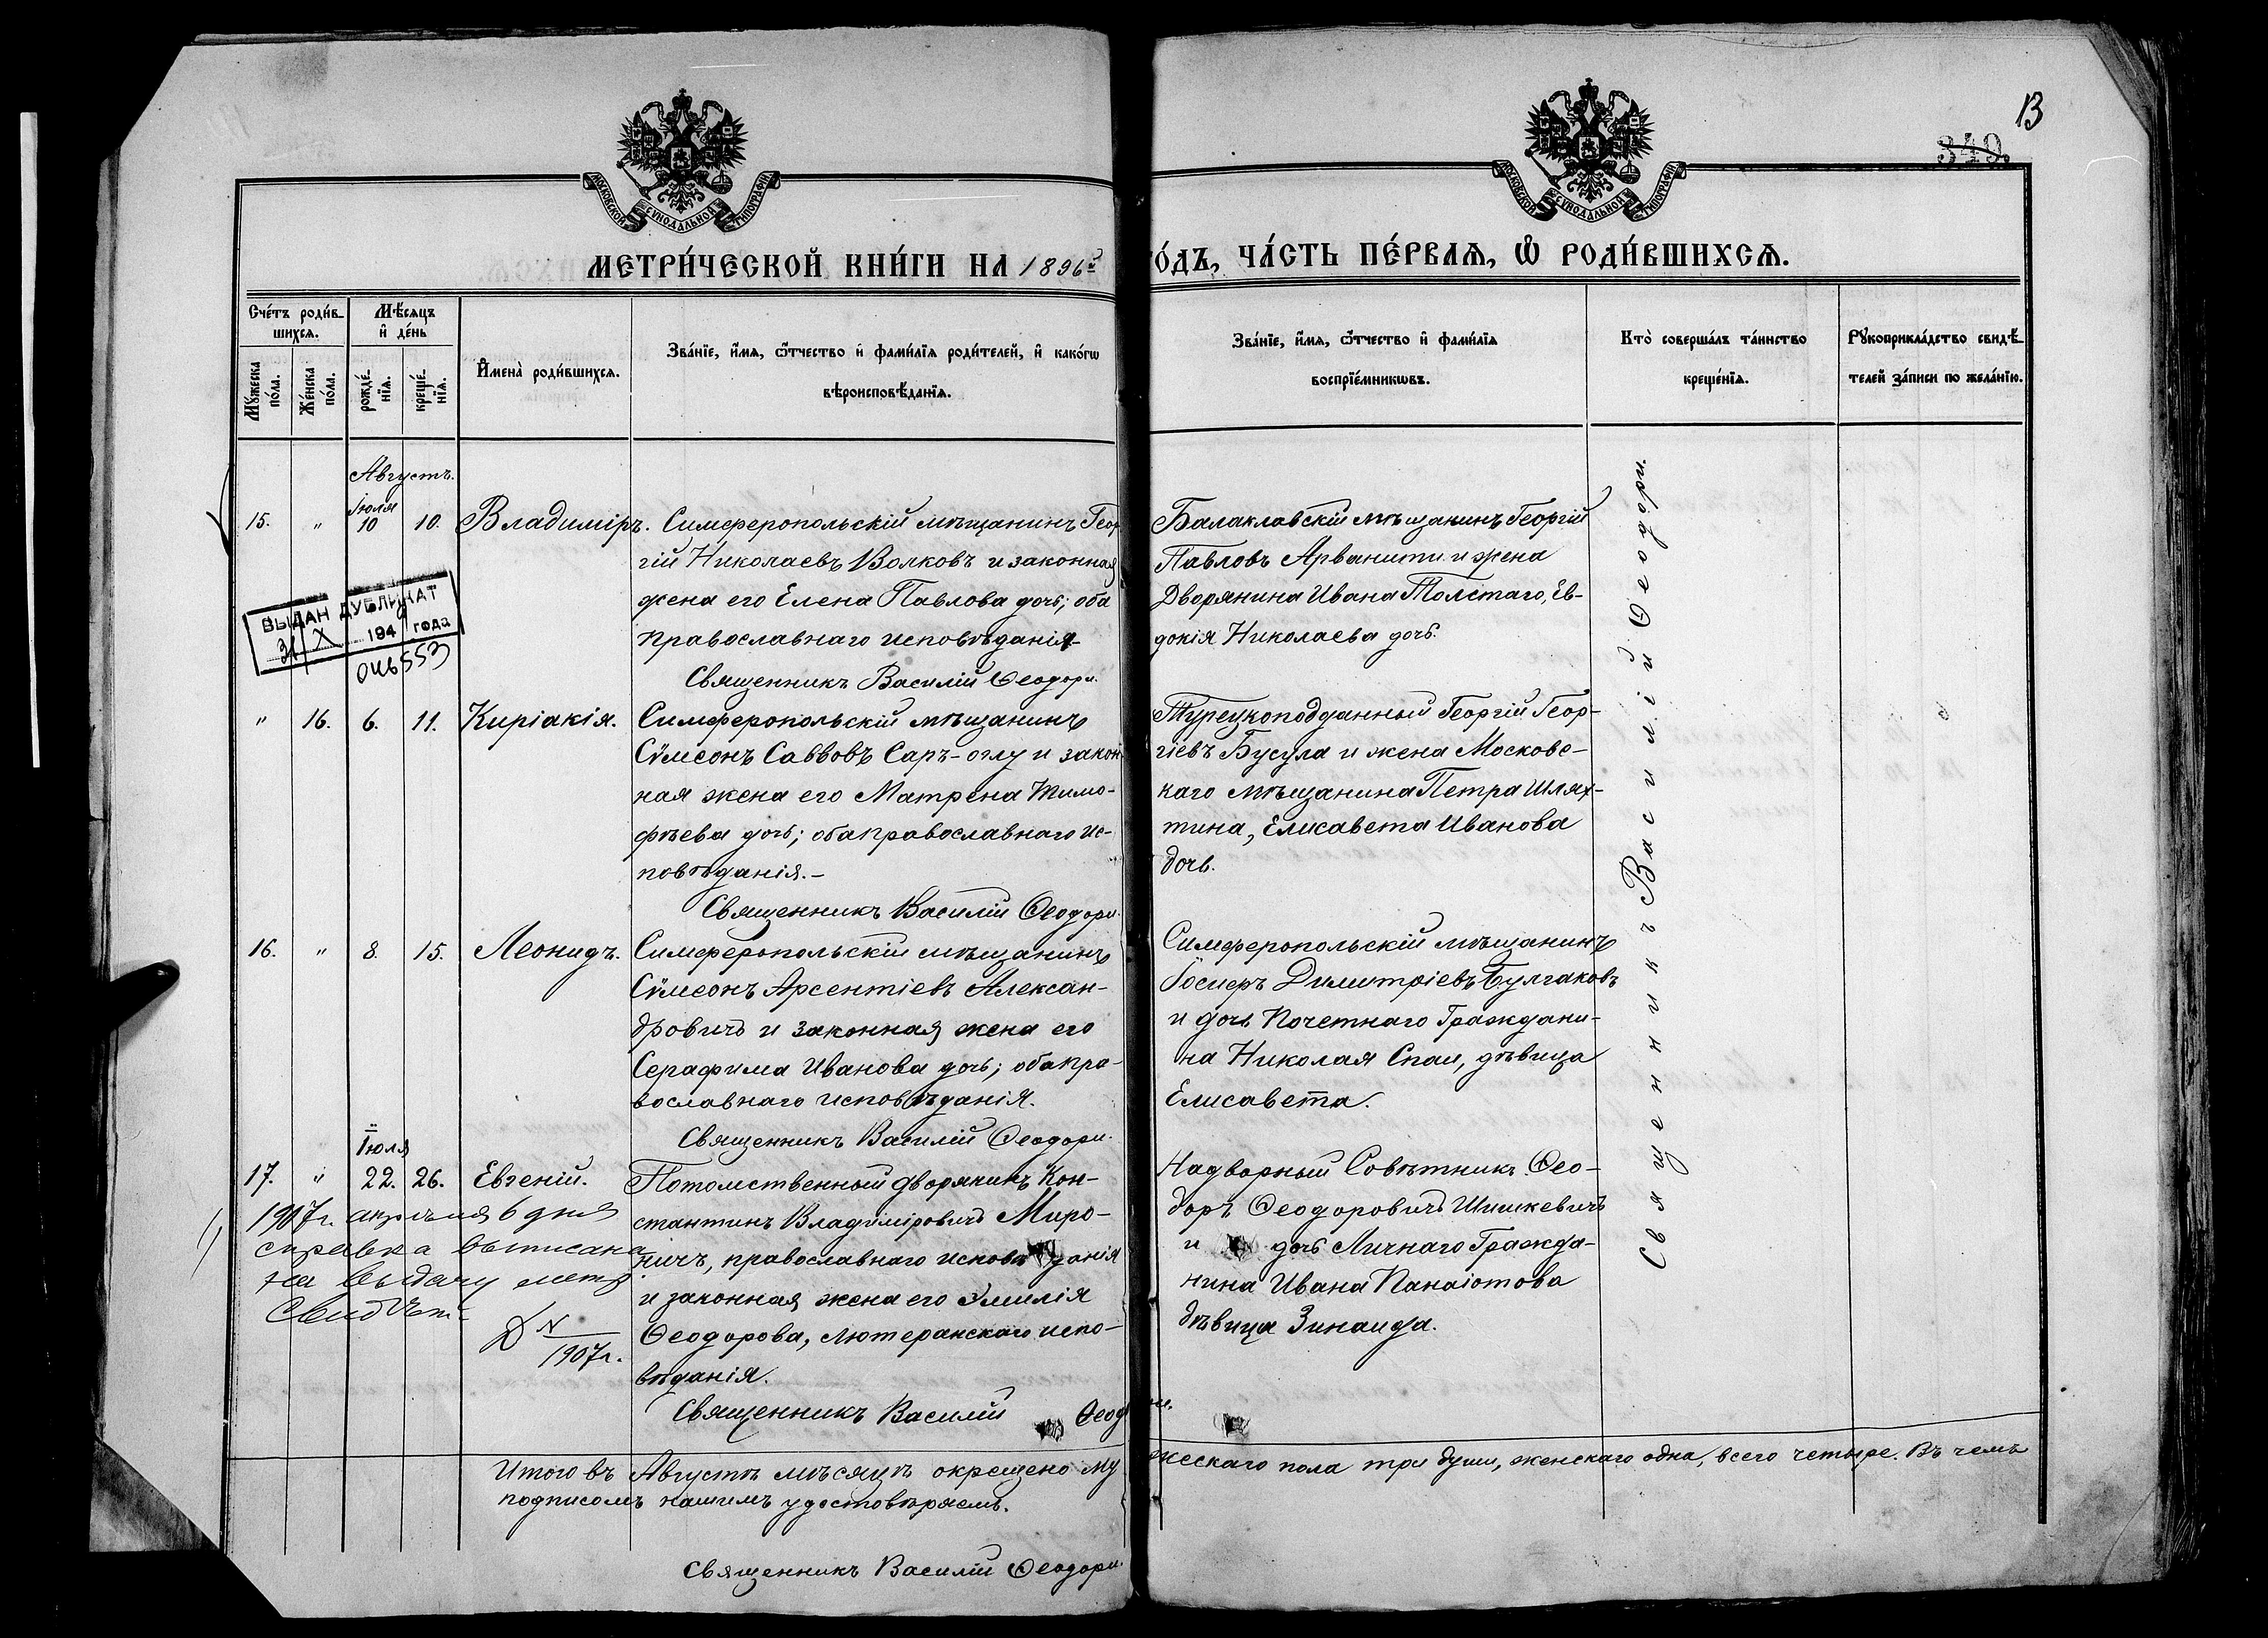 13
349.
МОСКОВСКОЙ СУНОДАЛЬНОЙ ТИПОГРАФІИ
МОСКОВСКОЙ СУНОДАЛЬНОЙ ТИПОГРАФІИ
МЕТРИ́ЧЕСКОЙ КНИ́ГИ НА 1896й
ГО́ДЪ, ЧА́СТЬ ПЕ́РВАѦ, Ѡ РОДИ́ВШИХСѦ.
Сче́тъ роди́в-
шихсѧ.
Мѣ́сяцъ
и де́нь
Мꙋ́жеска
по́ла.
Же́нска
по́ла.
рожде́-
нїѧ.
креще́-
нїѧ.
Имена̀ роди́вшихсѧ.
Зва́нїе, и́мѧ, ѻ́тчество и фами́лїѧ роди́телей, и како́гѡ
вѣроисповѣ́данїѧ.
Зва́нїе, и́мѧ, ѻ́тчество и фами́лїѧ
воспрїе́мникѡвъ.
Кто̀ соверша́лъ та́инство
креще́нїѧ.
Рꙋкоприкла́дство свидѣ́-
телей за́писи по жела́нїю.
Августъ.
15. " Іюля 10 10. Владиміръ. Симферопольскій мѣщанинъ Геор
гій Николаевъ Волковъ и законная
жена его Елена Павлова дочь; оба
православнаго исповѣданія
Священникъ Василій Ѳеодори.
Балаклавскій мѣщанинъ Георгій
Павловъ Арванити и жена
Дворянина Ивана Толстаго, Ев-
докія Николаева дочь.
ВЫДАН ДУБЛИКАТ
31 X 194 года
046553
" 16. 6. 11. Киріакія. Симферопольскій мѣщанинъ
Сѵмеонъ Саввовъ Саръ-оглу и закон
ная жена его Матрена Тимо-
фѣева дочь; оба православнаго ис-
повѣданія.-
Священникъ Василій Ѳеодори.
Турецкоподданный Георгій Геор-
гіевъ Бусула и жена Московс-
каго мѣщанина Петра Шлях-
тина, Елисавета Иванова
дочь.
16. " 8. 15. Леонидъ. Симферопольскій мѣщанинъ
Сѵмеонъ Арсентіевъ Алексан-
дровичъ и законная жена его
Серафима Иванова дочь; оба пра-
вославнаго исповѣданія.
Священникъ Василій Ѳеодори.
Симферопольскій мѣщанинъ
Іосифъ Димитріевъ Булгаковъ
и дочь Почетнаго Граждани-
на Николая Спаи, дѣвица
Елисавета.
Іюля
17. " 22. 26. Евгеній. Потомственный дворянинъ Кон-
стантинъ Владиміровичъ Миро-
ничъ, православнаго исповѣданія
и законная жена его Эмилія
Ѳеодорова, лютеранскаго испо-
вѣданія.
Священникъ Василій Ѳеодори.
1907г. апрѣля 6 дня
справка выписана
на выдачу метр
свидѣт.
N
1907г.
Надворный Совѣтникъ Ѳео-
доръ Ѳеодоровичъ Шишкевичъ
и дочь Личнаго Гражда-
нина Ивана Панаіотова
дѣвица Зинаида.
Священникъ Василій Ѳеодори.
Итого въ Августѣ мѣсяцѣ окрещено мужескаго пола три души, женскаго одна, всего четыре. Въ чемъ
подписомъ нашимъ удостовѣряемъ.
Священникъ Василій Ѳеодори.